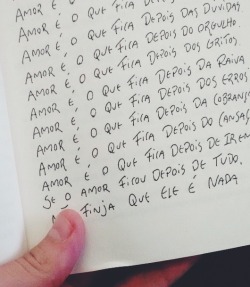 AMOR É, O QUE FICA DEPOIS
AMOR É, O QUE FICA DEPOIS DAS DÚVIDAS
AMOR É, O QUE FICA DEPOIS DO ORGULHO
AMOR É, O QUE FICA DEPOIS DOS GRITOS
AMOR É, O QUE FICA DEPOIS DA RAIVA
AMOR É, O QUE FICA DEPOIS DOS ERROS
AMOR É, O QUE FICA DEPOIS DA COBRANÇA
AMOR É, O QUE FICA DEPOIS DO CANSAÇO
AMOR É O QUE FICA DEPOIS DE IREM
SE O AMOR FICOU DEPOIS DE TUDO,
FINJA QUE ELE É NADA